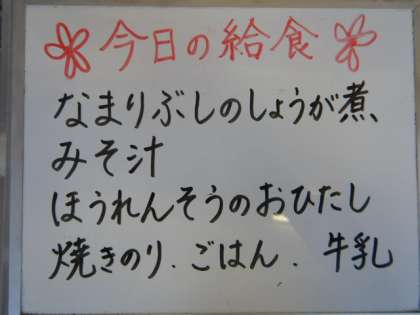 今日の給食
なまりぶしのしょうが煮、
みそ汁
ほうれんそうのおひたし
焼きのり.ごはん.牛乳